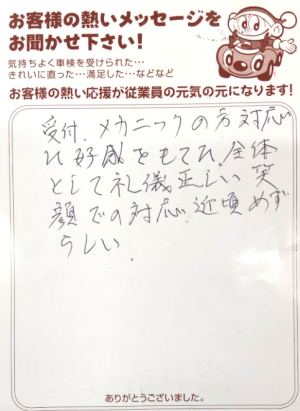 お客様の熱いメッセージを
お聞かせ下さい!
気持ちよく車検を受けられた…
きれいに直った…満足した…などなど
お客様の熱い応援が従業員の元気の元になります!
受付、メカニックの方対応
に好感をもてた。全体
として礼儀正しい笑
顔での対応。近頃めず
らしい。
ありがとうございました。